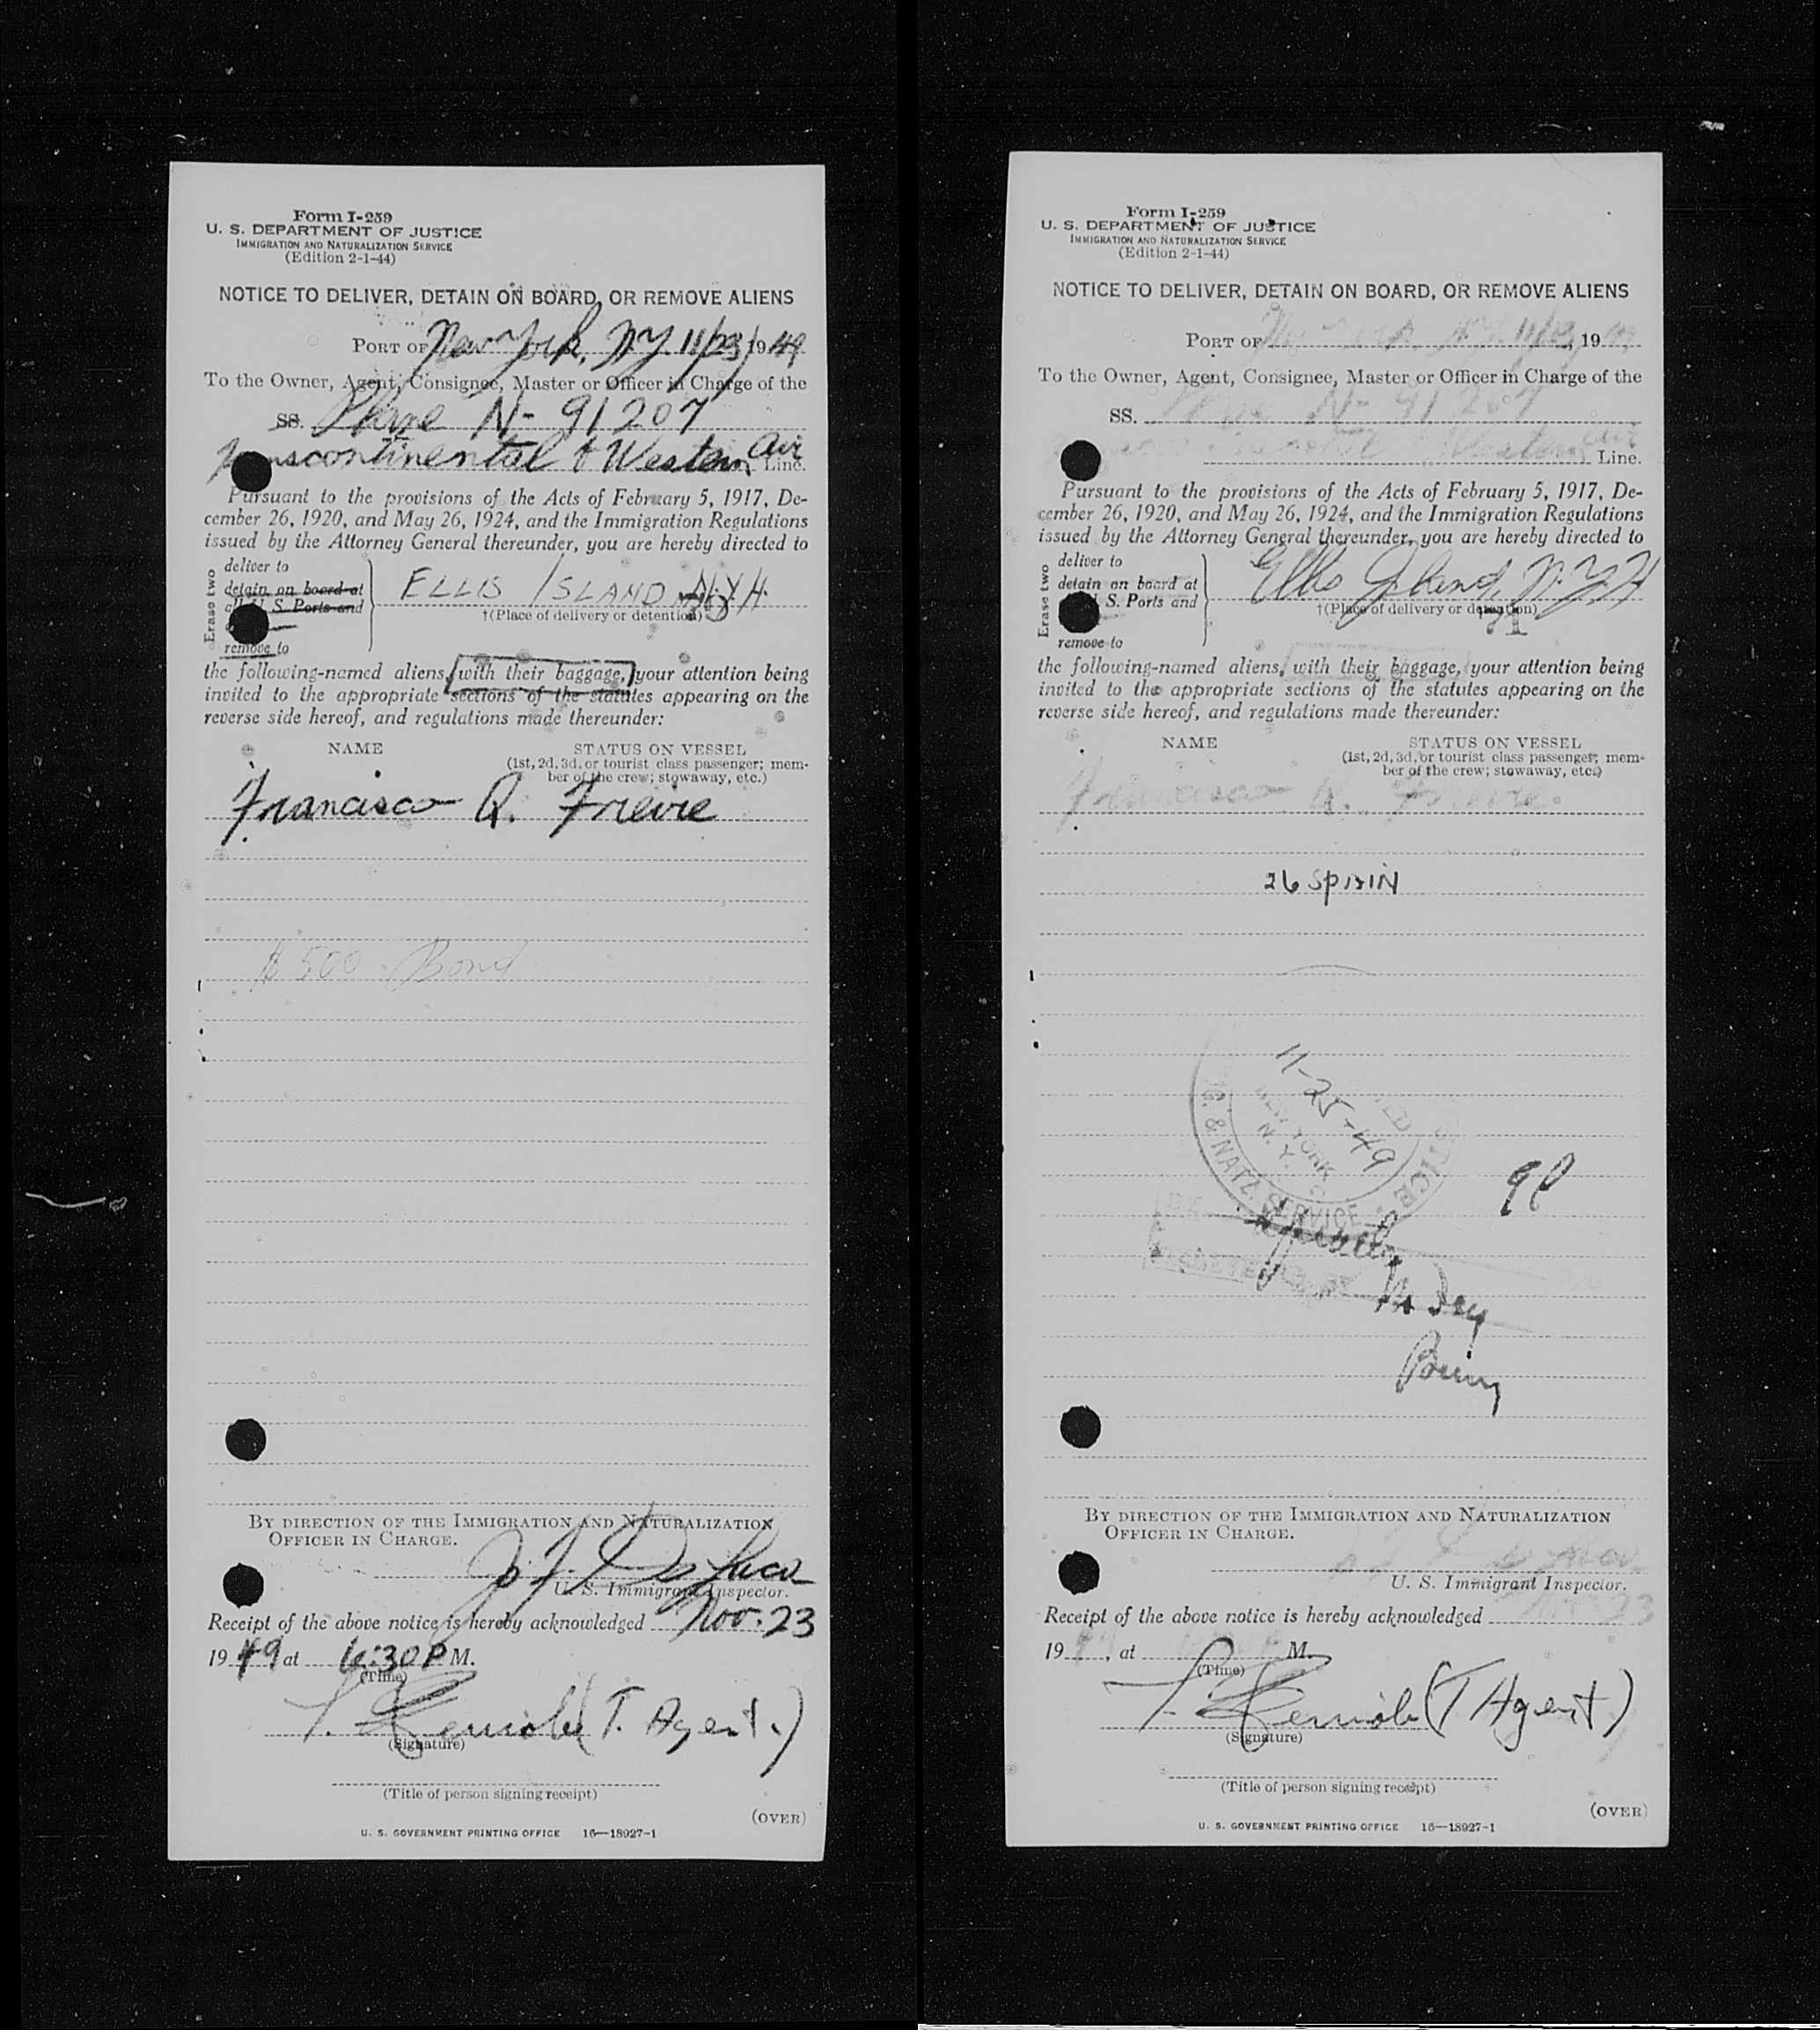 Form I-259
U. S. DEPARTMENT OF JUSTICE
IMMIGRATION AND NATURALIZATION SERVICE
(Edition 2-1-44)
NOTICE TO DELIVER, DETAIN ON BOARD, OR REMOVE ALIENS
PORT OF New York, N.Y. 11/23/ 1949
To the Owner, Agent, Consignee, Master or Officer in Charge of the
SS. Plane N-91207
Transcontinental & Western Air Line.
Pursuant to the provisions of the Acts of February 5, 1917, De-
cember 26, 1920, and May 26, 1924, and the Immigration Regulations
issued by the Attorney General thereunder, you are hereby directed to
Erase two
deliver to
detain on board at
all U. S. Ports and
remove to
ELLIS ISLAND N.Y.H.
†(Place of delivery or detention)
the following-named aliens, with their baggage, your attention being
invited to the appropriate sections of the statutes appearing on the
reverse side hereof, and regulations made thereunder:
NAME STATUS ON VESSEL
(1st, 2d, 3d, or tourist class passenger; mem-
ber of the crew; stowaway, etc.)
Francisco Q. Freire
$500 Bond
BY DIRECTION OF THE IMMIGRATION AND NATURALIZATION
OFFICER IN CHARGE.
U. S. Immigrant Inspector.
Receipt of the above notice is hereby acknowledged Nov. 23
1949 at 6:30 P M.
(Time)
(T. Agent.)
(Signature)
(Title of person signing receipt)
(OVER)
U. S. GOVERNMENT PRINTING OFFICE 16—18927-1
Form I-259
U. S. DEPARTMENT OF JUSTICE
IMMIGRATION AND NATURALIZATION SERVICE
(Edition 2-1-44)
NOTICE TO DELIVER, DETAIN ON BOARD, OR REMOVE ALIENS
PORT OF New York, N.Y. 11/23/, 1949
To the Owner, Agent, Consignee, Master or Officer in Charge of the
SS. Plane N-91207
Transcontinental & Western Air Line.
Pursuant to the provisions of the Acts of February 5, 1917, De-
cember 26, 1920, and May 26, 1924, and the Immigration Regulations
issued by the Attorney General thereunder, you are hereby directed to
Erase two
deliver to
detain on board at
S. Ports and
remove to
Ellis Island, N.Y.H
†(Place of delivery or detention)
the following-named aliens, with their baggage, your attention being
invited to the appropriate sections of the statutes appearing on the
reverse side hereof, and regulations made thereunder:
NAME STATUS ON VESSEL
(1st, 2d, 3d, or tourist class passenger; mem-
ber of the crew; stowaway, etc.)
Francisco Q. Freire
26 SPAIN
11-25-49
NEW YORK
N. Y.
& NATZ. SERVICE
BY DIRECTION OF THE IMMIGRATION AND NATURALIZATION
OFFICER IN CHARGE.
U. S. Immigrant Inspector.
Receipt of the above notice is hereby acknowledged Nov. 23
1949, at M.
(Time)
(T Agent)
(Signature)
(Title of person signing receipt)
(OVER)
U. S. GOVERNMENT PRINTING OFFICE 16—18927-1